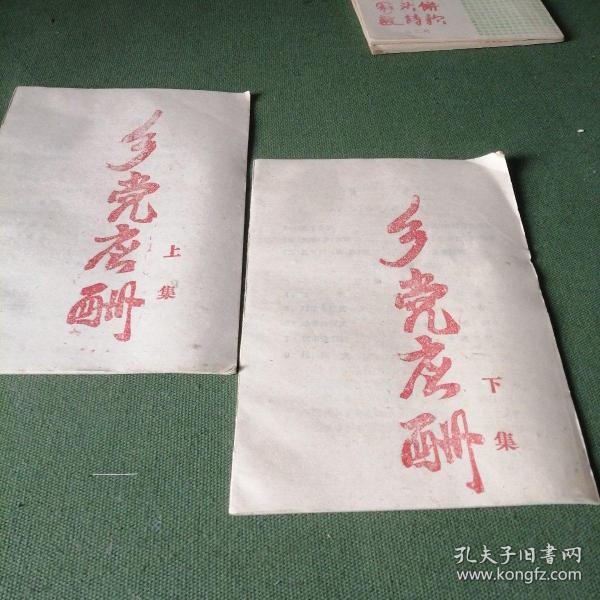 乡党应酬
上集
乡党应酬
下集
孔夫子旧书网
www.kongfz.com